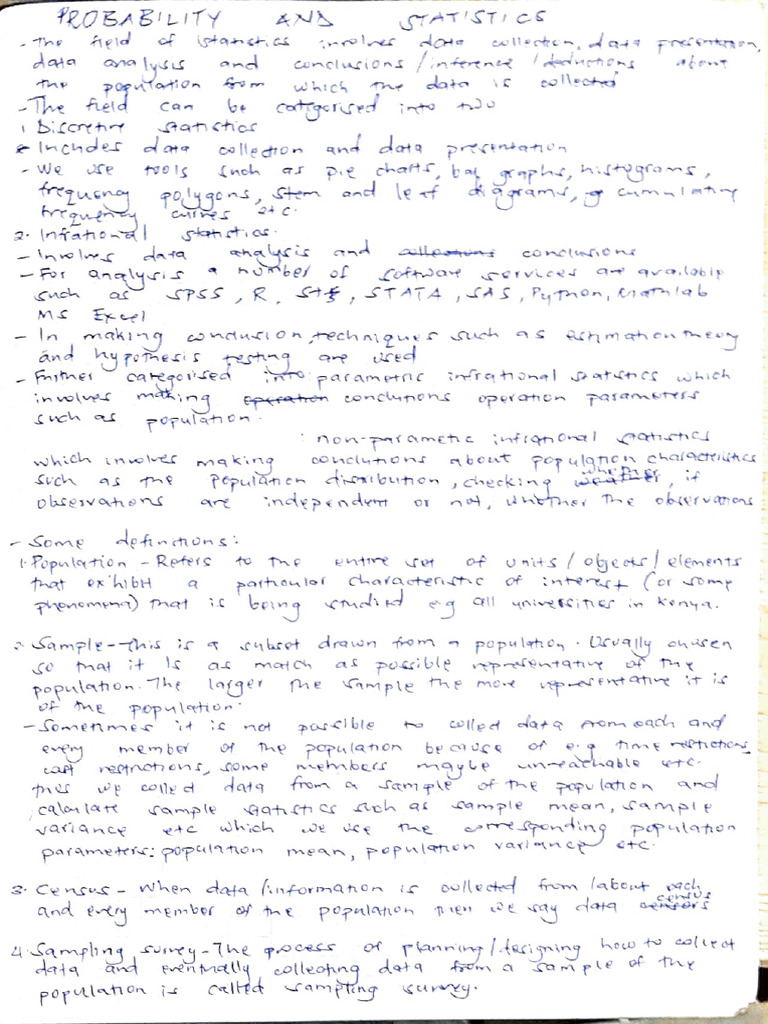 PROBABILITY AND STATISTICS
- The field of statistics involves data collection, data presentation,
data analysis and conclusions / inference / deductions about
the population from which the data is collected
- The field can be categorised into two
1. Discretive statistics
- Includes data collection and data presentation
- We use tools such as pie charts, bar graphs, histograms,
frequency polygons, stem and leaf diagrams, cumulative
frequency curves etc.
2. Infrational statistics.
- Involves data analysis and conclusions
- For analysis a number of software services are available
such as SPSS, R, STATA, SAS, Python, Mathlab
MS Excel
- In making conclusion, techniques such as estimation theory
and hypothesis testing are used
- Further categorised into parametric infrational statistics which
involves making conclutions operation parameters
such as population.
: non-parametic infrational statistics
which involves making conclutions about population characteristics
such as the population distribution, checking whether, if
observations are independent or not, whether the observations
- Some definctions:
1. Population - Refers to the entire set of units / objects / elements
that exhibit a particular characteristic of interest (or some
phenomena) that is being studied e.g all universities in Kenya.
2. Sample - This is a subset drawn from a population. Usually chosen
so that it is as match as possible representative of the
population. The larger the sample the more representative it is
of the population.
- Sometimes it is not possible to collect data from each and
every member of the population because of e.g time restrictions,
cost restrictions, some members maybe unreachable etc.
thus we collect data from a sample of the population and
calculate sample statistics such as sample mean, sample
variance etc which we use the corresponding population
parameters: population mean, population variance etc.
3. Census - When data / information is collected from / about each
and every member of the population then we say data census
4. Sampling survey - The process of planning / designing how to collect
data and eventually collecting data from a sample of the
population is called sampling survey.